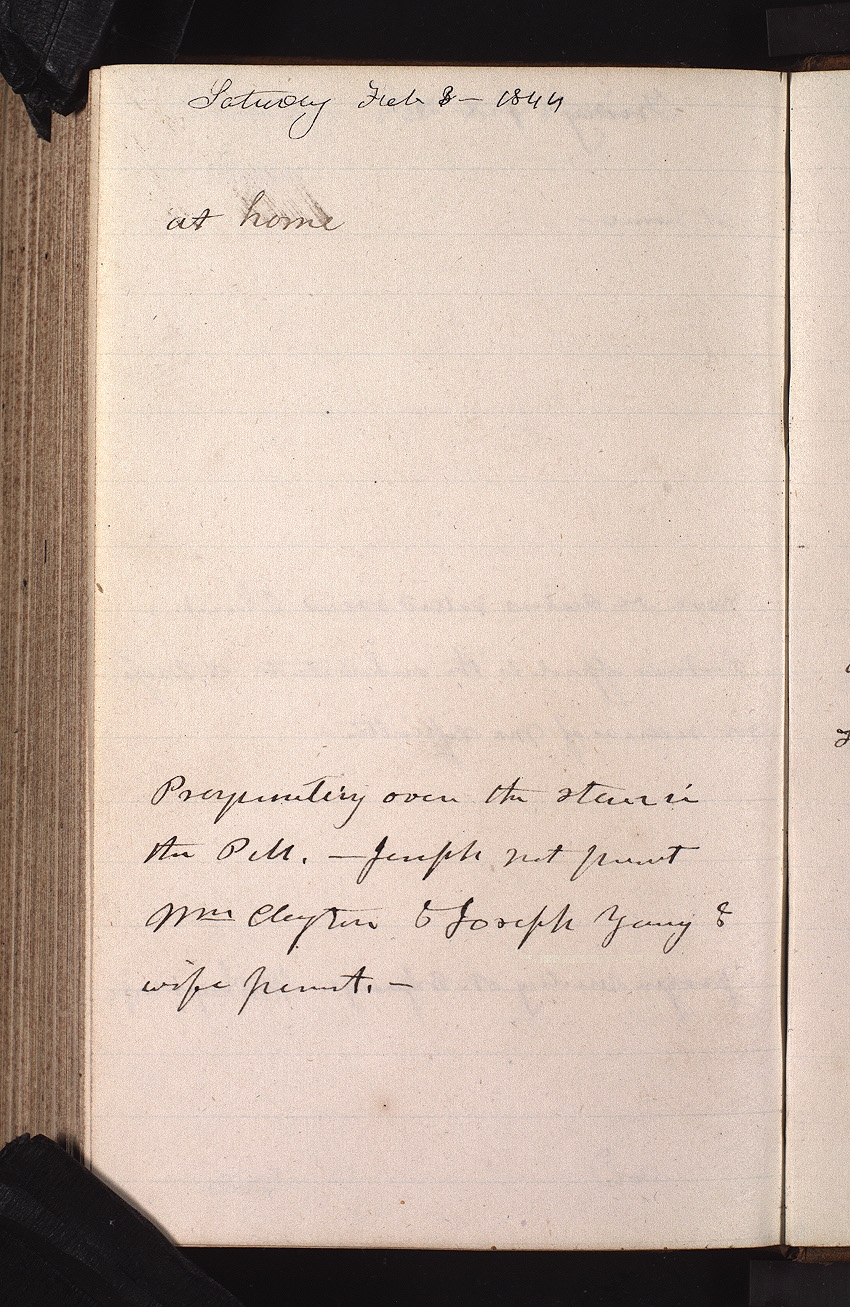 Saturday Feb 3— 1844
at home
Prayer meeting over the store in
the P.M. — Joseph not present
Wm Clayton & Joseph Young &
wife present. —